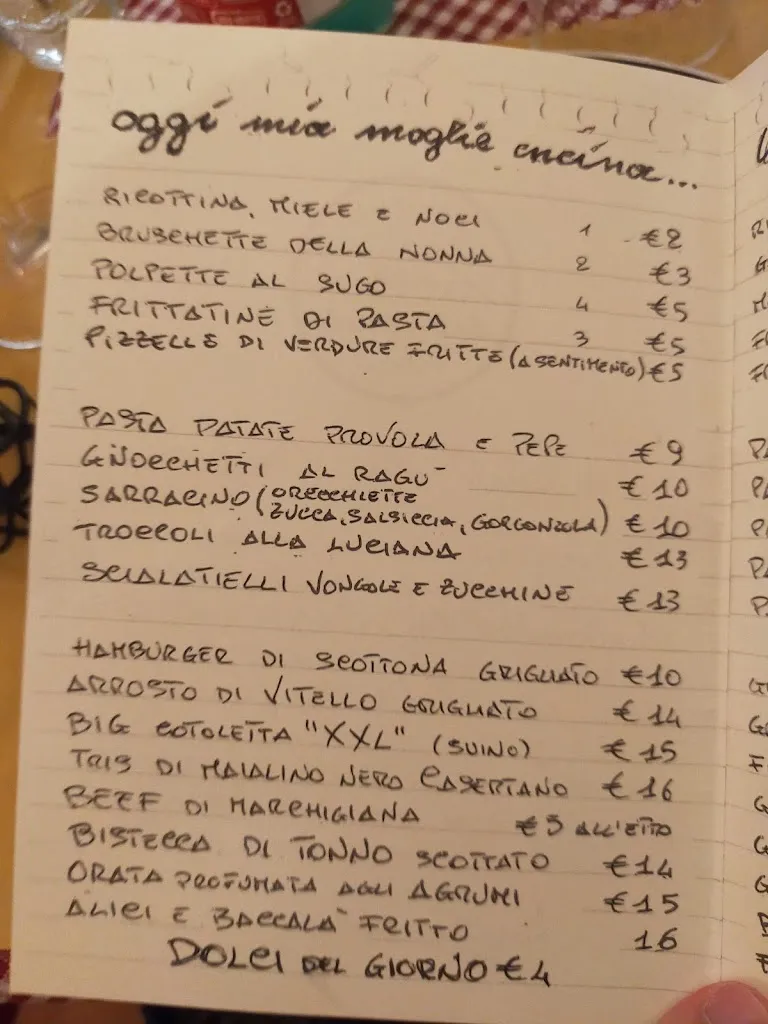 oggi mia moglie cucina...
RICOTTINA, MIELE E NOCI 1 €2
BRUSCHETTE DELLA NONNA 2 €3
POLPETTE AL SUGO 4 €5
FRITTATINE DI PASTA 3 €5
PIZZELLE DI VERDURE FRITTE (A SENTIMENTO) €5
PASTA PATATE PROVOLA E PEPE €9
GNOCCHETTI AL RAGU' €10
SARRACINO (ORECCHIETTE
ZUCCA, SALSICCIA, GORGONZOLA) €10
TROCCOLI ALLA LUCIANA €13
SCIALATIELLI VONGOLE E ZUCCHINE €13
HAMBURGER DI SCOTTONA GRIGLIATO €10
ARROSTO DI VITELLO GRIGLIATO €14
BIG COTOLETTA "XXL" (SUINO) €15
TRIS DI MAIALINO NERO CASERTANO €16
BEEF DI MARCHIGIANA €5 ALL'ETTO
BISTECCA DI TONNO SCOTTATO €14
ORATA PROFUMATA AGLI AGRUMI €15
ALICI E BACCALA' FRITTO 16
DOLCI DEL GIORNO €4